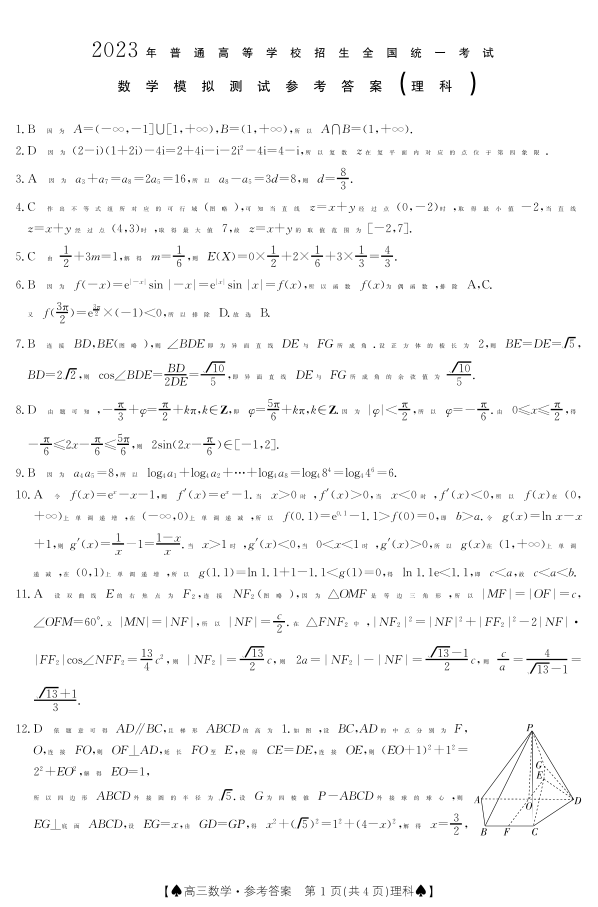 2023年普通高等学校招生全国统一考试
数学模拟测试参考答案(理科)
1.B 因为 A=(-∞,-1]∪[1,+∞),B=(1,+∞),所以 A∩B=(1,+∞).
2.D 因为(2-i)(1+2i)-4i=2+4i-i-2i²-4i=4-i,所以复数 z在复平面内对应的点位于第四象限.
3.A 因为 a₂+a₇=a₈=2a₅=16,所以 a₈-a₅=3d=8,则 d=8/3.
4.C 作出不等式组所对应的可行域(图略),可知当直线 z=x+y经过点(0,-2)时,取得最小值-2,当直线
z=x+y经过点(4,3)时,取得最大值7,故 z=x+y的取值范围为[-2,7].
5.C 由 1/2+3m=1,解得 m=1/6,则 E(X)=0×1/2+2×1/6+3×1/3=4/3.
6.B 因为 f(-x)=e^|-x| sin |-x|=e^|x| sin |x|=f(x),所以函数 f(x)为偶函数,排除 A,C.
又 f(3π/2)=e^(3π/2)×(-1)<0,所以排除 D.故选 B.
7.B 连接 BD,BE(图略),则∠BDE即为异面直线 DE与FG所成角.设正方体的棱长为2,则 BE=DE=√5,
BD=2√2,则 cos∠BDE=BD/2DE=√10/5,即异面直线 DE与FG所成角的余弦值为√10/5.
8.D 由题可知,-π/3+φ=π/2+kπ,k∈Z,即 φ=5π/6+kπ,k∈Z.因为|φ|<π/2,所以 φ=-π/6.由 0≤x≤π/2,得
-π/6≤2x-π/6≤5π/6,则 2sin(2x-π/6)∈[-1,2].
9.B 因为 a₄a₅=8,所以 log₄a₁+log₄a₂+⋯+log₄a₈=log₄8⁴=log₄4⁶=6.
10.A 令 f(x)=eˣ-x-1,则 f′(x)=eˣ-1.当 x>0时,f′(x)>0,当 x<0时,f′(x)<0,所以 f(x)在(0,
+∞)上单调递增,在(-∞,0)上单调递减,所以 f(0.1)=e^0.1-1.1>f(0)=0,即 b>a.令 g(x)=ln x-x
+1,则 g′(x)=1/x-1=(1-x)/x.当 x>1时,g′(x)<0,当 0<x<1时,g′(x)>0,所以 g(x)在(1,+∞)上单调
递减,在(0,1)上单调递增,所以 g(1.1)=ln 1.1+1-1.1<g(1)=0,得 ln 1.1e<1.1,即 c<a,故 c<a<b.
11.A 设双曲线 E的右焦点为F₂,连接 NF₂(图略),因为△OMF是等边三角形,所以|MF|=|OF|=c,
∠OFM=60°.又|MN|=|NF|,所以|NF|=c/2.在△FNF₂中,|NF₂|²=|NF|²+|FF₂|²-2|NF|·
|FF₂|cos∠NFF₂=13/4c²,则|NF₂|=√13/2 c,则 2a=|NF₂|-|NF|=(√13-1)/2 c,则 c/a=4/(√13-1)=
(√13+1)/3.
12.D 依题意可得 AD∥BC,且梯形 ABCD的高为1.如图,设 BC,AD的中点分别为F,
O,连接 FO,则 OF⊥AD,延长 FO至E,使得 CE=DE,连接 OE,则(EO+1)²+1²=
2²+EO²,解得 EO=1,
所以四边形 ABCD外接圆的半径为√5.设 G为四棱锥 P-ABCD外接球的球心,则
EG⊥底面 ABCD,设 EG=x,由 GD=GP,得 x²+(√5)²=1²+(4-x)²,解得 x=3/2,
P
G
E
A
O
D
B
F
C
【♠高三数学·参考答案 第1页(共4页)理科♠】